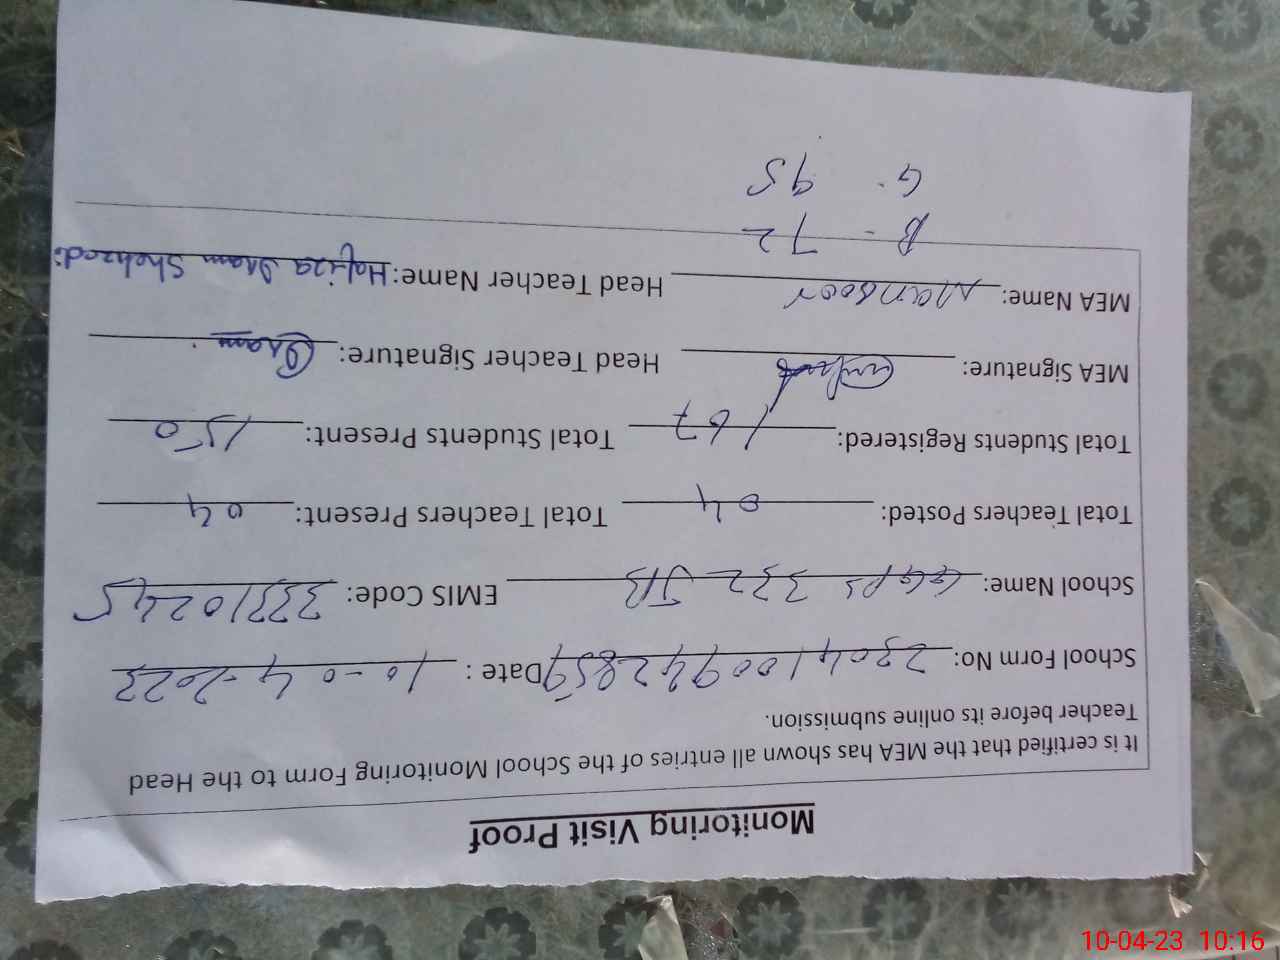 Monitoring Visit Proof
It is certified that the MEA has shown all entries of the School Monitoring Form to the Head
Teacher before its online submission.
School Form No: 2304100942859 Date : 10-04-2023
School Name: GGPS 332 JB EMIS Code: 33310245
Total Teachers Posted: 04 Total Teachers Present: 04
Total Students Registered: 167 Total Students Present: 150
MEA Signature: Head Teacher Signature:
MEA Name: Mansoor Head Teacher Name: Hafiza Iram Shehzadi
B - 72
G - 95
10-04-23 10:16